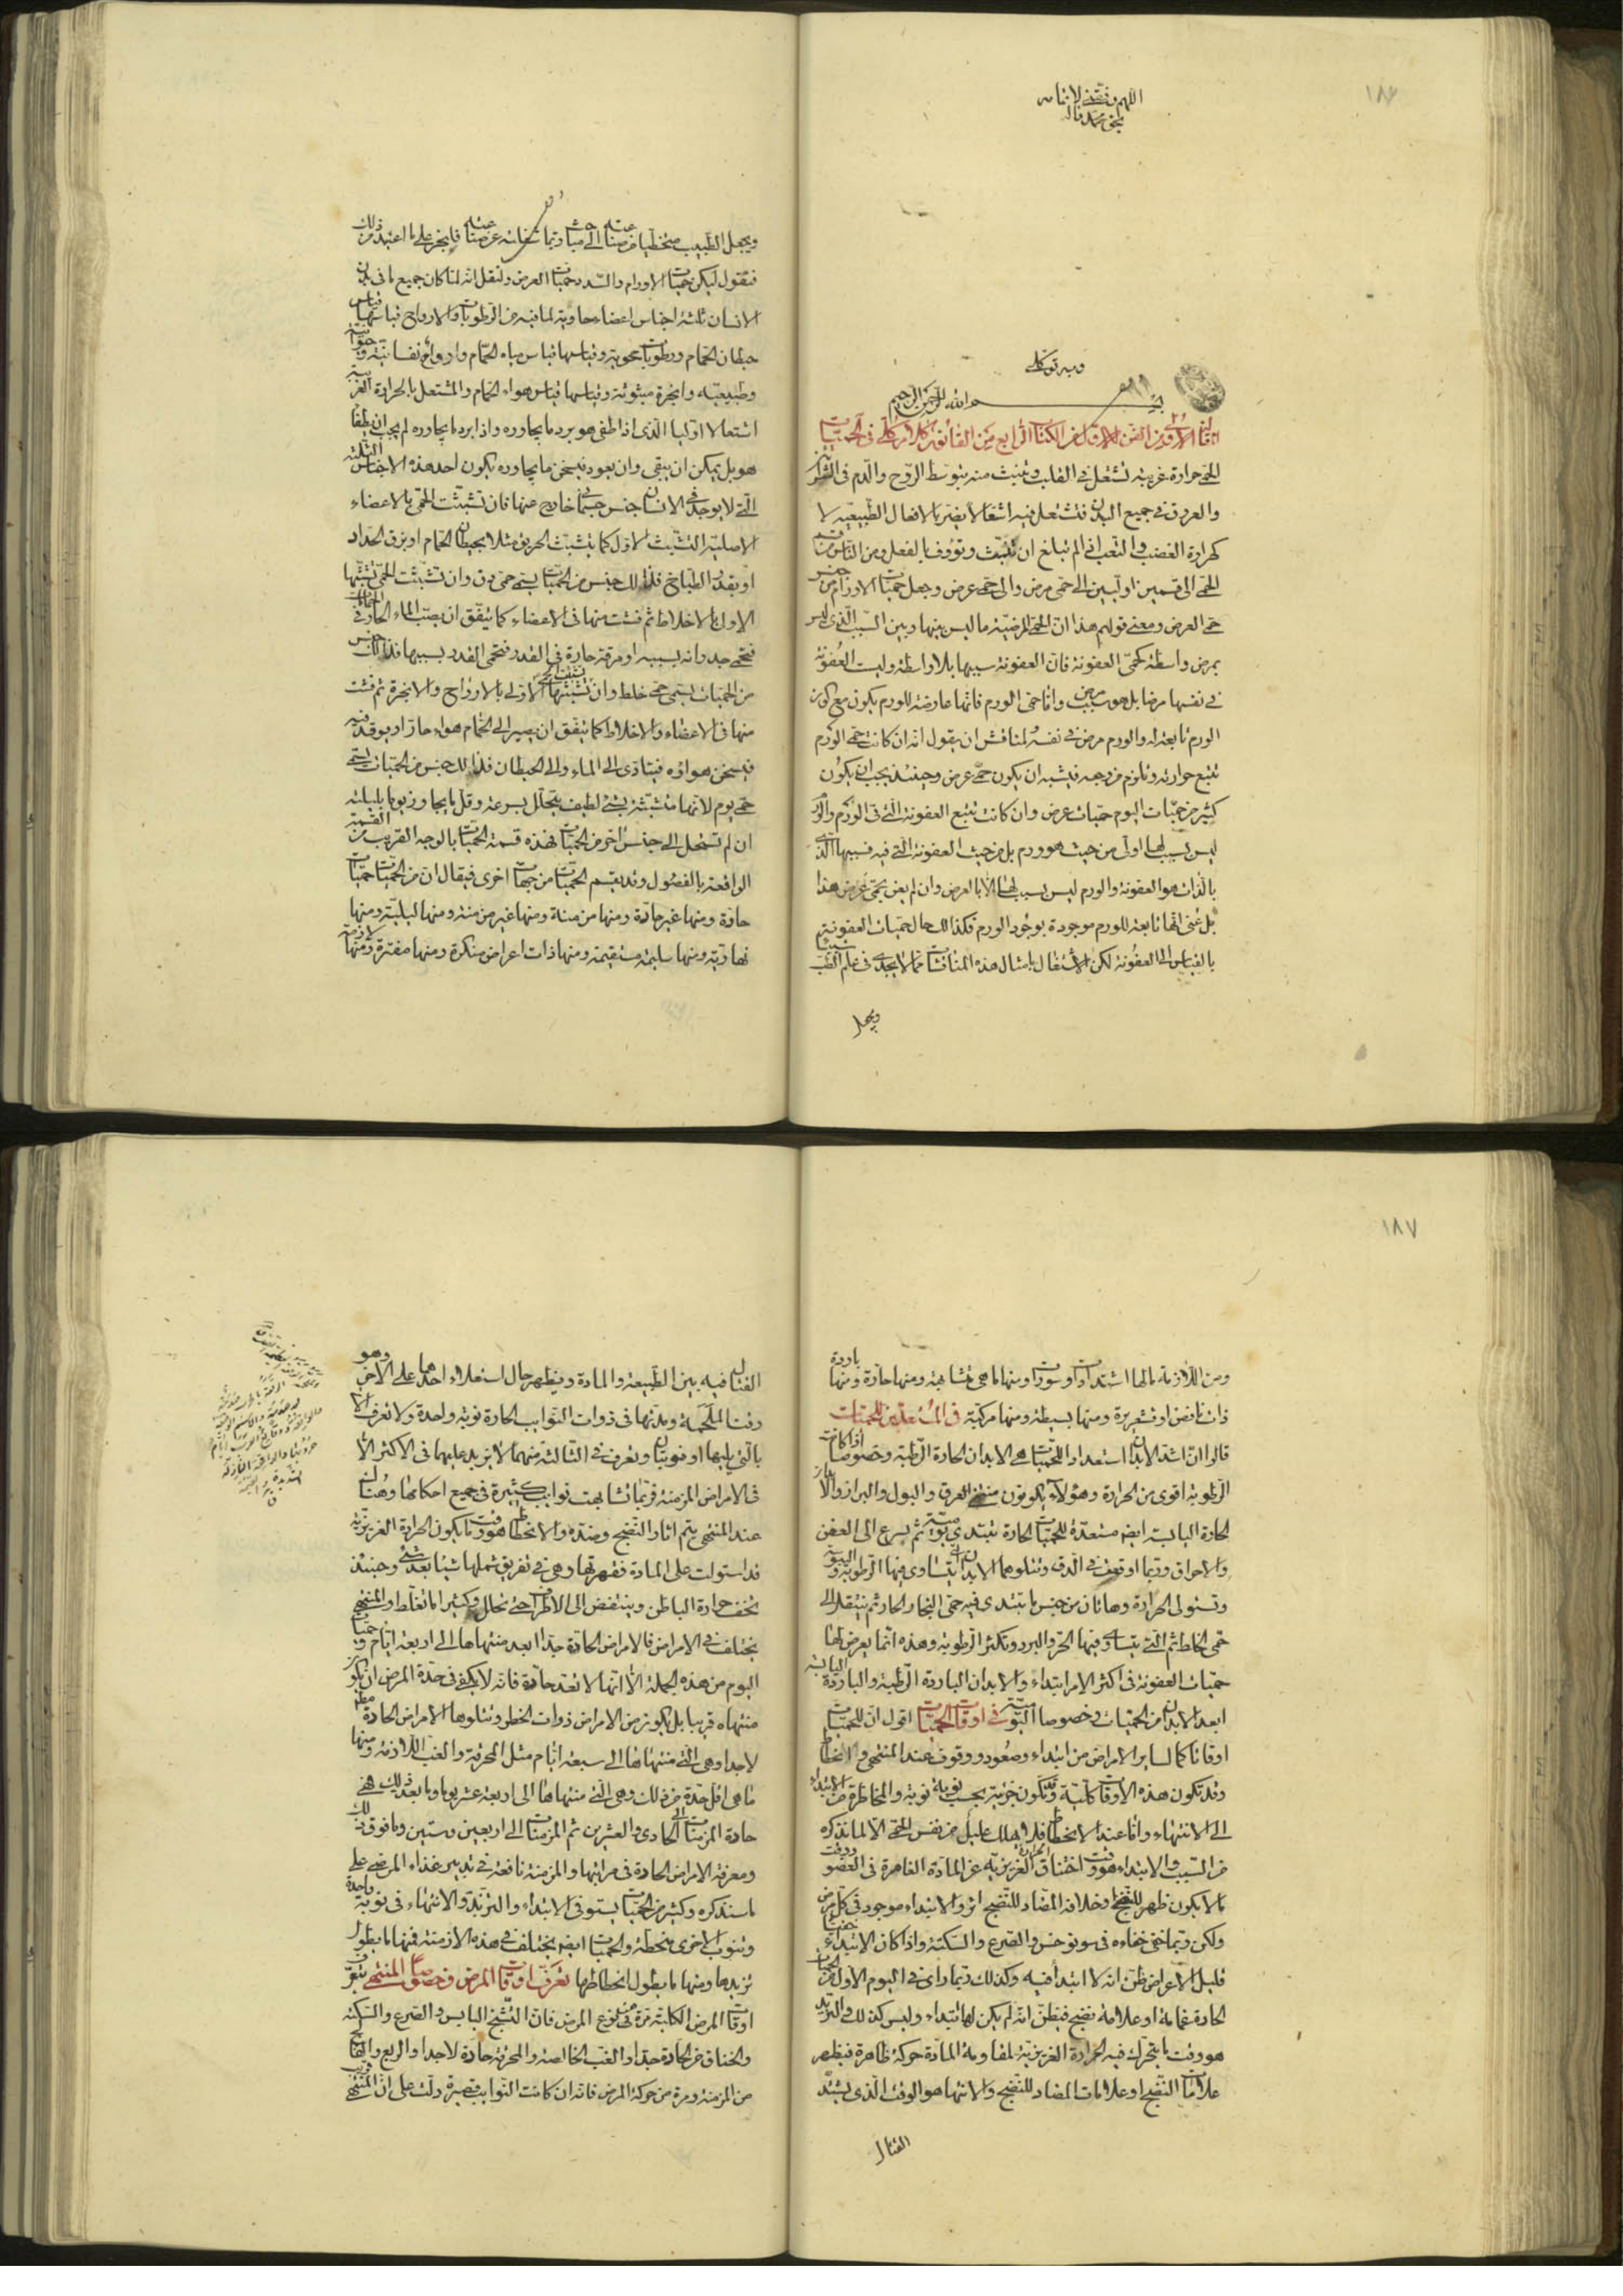 ١٨٦
اللهم وفقني لاتمامه
بحق محمد واله
وبه توكلي
بسم الله الرحمن الرحيم
المقالة الاولى من الفن الاول من الكتاب الرابع من القانون كلام كلي في الحميات
الحمى حرارة غريبة تشتعل في القلب وتنبث منه بتوسط الروح والدم في الشرائين
والعروق في جميع البدن فتشتعل فيه اشتعالا يضر بالافعال الطبيعية لا
كحرارة الغضب والتعب اذا لم تبلغ ان تتشبث وتؤوف بالفعل ومن الناس من قسم
الحمى الى قسمين اوليين الى حمى مرض والى حمى عرض وجعل حميات الاورام من جنس
حمى العرض ومعنى قولهم هذا ان الحمى المرضية ما ليس بينها وبين السبب الذي ليس
بمرض واسطة كحمى العفونة فان العفونة سببها بلا واسطة وليست العفونة
في نفسها مرضا بل هو سبب مرض واما حمى الورم فانها عارضة للورم يكون مع كون
الورم تابعة له والورم مرض في نفسه ولمناقش ان يقول انه ان كانت حمى الورم
تتبع حرارته وتلزم من وجه فيشبه ان يكون حمى عرض وحينئذ يجب ان يكون
كثير من حميات اليوم حميات عرض وان كانت تتبع العفونة التي في الورم والورم
ليس بسبب لها اولي من حيث هو ورم بل من حيث العفونة التي فيه فسببها الذي
بالذات هو العفونة والورم ليس بسبب لها الا بالعرض وان لم يعن بحمى عرض هذا
بل عنى انها تابعة للورم موجودة بوجود الورم فكذلك حال حميات العفونة
بالقياس الى العفونة لكن الاشتغال بامثال هذه المناقشات مما لا يجدي في علم الطب شيئا
ويجعل
ويجعل الطبيب متخطيا من صناعته الى مباحث ربما شغلته عن صناعته فلنجر على ما اعتيد من ذلك
فنقول ليكن حميات الاورام والسدد حميات العرض ولنقل انه لما كان جميع ما في بدن
الانسان ثلثة اجناس اعضاء حاوية لما فيه من الرطوبات والارواح قياسها قياس
حيطان الحمام ورطوبات محوية وقياسها قياس مياه الحمام وارواح نفسانية وحيوانية
وطبيعية وابخرة مبثوثة وقياسها قياس هواء الحمام والمشتعل بالحرارة الغريبة
اشتعالا اوليا الذي اذا طفى هو برد ما يجاوره واذا برد ما يجاوره لم يجب ان يطفا
هو بل يمكن ان يبقى وان يعود فيسخن ما يجاوره يكون احد هذه الاجناس الثلثة
التي لا يوجد في الانسان جنس جسماني خارج عنها فان تشبثت الحمى بالاعضاء
الاصلية التشبث الاول كما يتشبث الحريق مثلا بحيطان الحمام او بزق الحداد
او بقدر الطباخ فذلك جنس من الحميات يسمى حمى دق وان تشبثت الحمى تشبثها
الاول بالاخلاط ثم فشت منها في الاعضاء كما يتفق ان يصب الماء الحار في الحمام
فتحمى جدرانه بسببه او مرقة حارة في القدر فتحمى القدر بسببها فذلك جنس
من الحميات يسمى حمى خلط وان تشبثت تشبثها الاولي بالارواح والابخرة ثم فشت
منها في الاعضاء والاخلاط كما يتفق ان يصير الى الحمام هواء حار او يوقد فيه
فيسخن هواؤه فيتادى الى الماء والى الحيطان فذلك جنس من الحميات يسمى
حمى يوم لانها متشبثة بشي لطيف يتحلل بسرعة وقل ما يجاوز يوما بليلته
ان لم تستحل الى جنس اخر من الحميات فهذه قسمة الحميات بالوجه القريب من القسمة
الواقعة بالفصول وقد يقسم الحميات من جهات اخرى فيقال ان من الحميات حميات
حادة ومنها غير حادة ومنها مزمنة ومنها غير مزمنة ومنها ليلية ومنها
نهارية ومنها سليمة مستقيمة ومنها ذات اعراض منكرة ومنها مفترة ومنها لازمة
١٨٧
ومن اللازمة ما لها اشتدادات وسورات ومنها ما هي متشابهة ومنها حارة ومنها باردة
ذات نافض او قشعريرة ومنها بسيطة ومنها مركبة في المستعدين للحميات
قالوا ان اشد الابدان استعدادا للحميات هي الابدان الحارة الرطبة وخصوصا اذا كانت
الرطوبة اقوى من الحرارة وهؤلاء يكونون منتني العرق والبول والبراز والابدان
الحارة اليابسة ايضا مستعدة للحميات الحارة تبتدي يومية ثم يسرع الى العفن
والاحراق وربما اوقعت في الدق ويتلوهما الابدان التي يتساوى فيها الرطوبة واليبوسة
وتستولي الحرارة وهاتان من جنس ما يبتدى فيه حمى البخار الحار ثم ينتقل الى
حمى الخلط ثم التي يتساوى فيها الحر والبرد وتكثر الرطوبة وهذه انما يعرض لها
حميات العفونة في اكثر الامر ابتداء والابدان الباردة الرطبة والباردة اليابسة
ابعد الابدان من الحميات وخصوصا اليومية في اوقات الحميات اقول ان للحميات
اوقاتا كما لساير الامراض من ابتداء وصعود ووقوف عند المنتهى وانحطاط
وقد تكون هذه الاوقات كلية وقد تكون جزئية بحسب نوبة نوبة والمخاطرة من الابتداء
الى الانتهاء واما عند الانحطاط فلا يهلك عليل من نفس الحمى الا لما نذكره
من السبب والابتداء هو وقت اختناق الحرارة الغريزية عن المادة الغامرة في العضو ووقت
ما لا يكون ظهر للنضج وخلافه المضاد للنضج اثر والابتداء موجود في كل مرض
ولكن ربما خفي خفاءه في سونوخس والصرع والسكتة واذا كان الابتداء خفيا
قليل الاعراض ظن انه لا ابتداء فيه وكذلك ربما راى في اليوم الاول من الحميات
الحادة غمامة او علامة نضج فيظن انه لم يكن لها ابتداء وليس كذلك والتزيد
هو وقت ما يتحرك فيه الحرارة الغريزية لمقاومة المادة حركة ظاهرة فيظهر
علامات النضج او علامات المضاد للنضج والانتهاء هو الوقت الذي يشتد
القتال
القتال فيه بين الطبيعة والمادة ويظهر حال استعلاء احدهما على الاخر وهو
وقت الملحمة ومدتها في ذوات النوايب الحادة نوبة واحدة ولا تعرف الا
بالتي يليها او نوبتان وتعرف في الثالثة منهما لا يزيد عليهما في الاكثر الا
في الامراض المزمنة فربما تشابهت نوايب كثيرة في جميع احكامها وهناك
عند المنتهى يتم اثار النضج وضده والانحطاط هو وقت ما يكون الحرارة الغريزية
قد استولت على المادة فقهرتها وهي في تفريق شملها شيئا بعد شي وحينئذ
يخف حرارة الباطن وينتفض الى الاطراف حتى تحلل وكثيرا ما تغلط والمنتهى
يختلف في الامراض فالامراض الحادة جدا ابعد منتهاها الى اربعة ايام وحميات
اليوم من هذه الجملة الا انها لا تعد حادة فانه لا يكفي في حدة المرض ان يكون
منتهاه قريبا بل يكون من الامراض ذوات الخطر ويتلوها الامراض الحادة مطلقا
لا جدا وهي التي منتهاها الى سبعة ايام مثل المحرقة والغب اللازمة ومنها
ما هي اقل حدة من ذلك وهي التي منتهاها الى اربعة عشر يوما وما بعد ذلك فهي
حادة المزمنات الى الحادي والعشرين ثم المزمنات الى اربعين وستين وما فوق ذلك
ومعرفة الامراض الحادة في مراتبها والمزمنة نافعة في تدبير غذاء المرضى على
ما سنذكره وكثير من الحميات يستوفى الابتداء والتزيد والانتهاء في نوبة واحدة
وتنوب الاخرى منحطة والحميات ايضا يختلف في هذه الازمنة فمنها ما يطول
تزيدها ومنها ما يطول انحطاطها تعرف اوقات المرض وخصوصا المنتهى تعرف
اوقات المرض الكلية مرة من نوع المرض فان التشنج اليابس والصرع والسكتة
والخناق من الحادة جدا والغب الخالصة والمحرقة حادة لا جدا والربع والفالج
من المزمنة ومرة من حركة المرض فانه ان كانت النوايب قصيرة دلت على ان المنتهى قريب